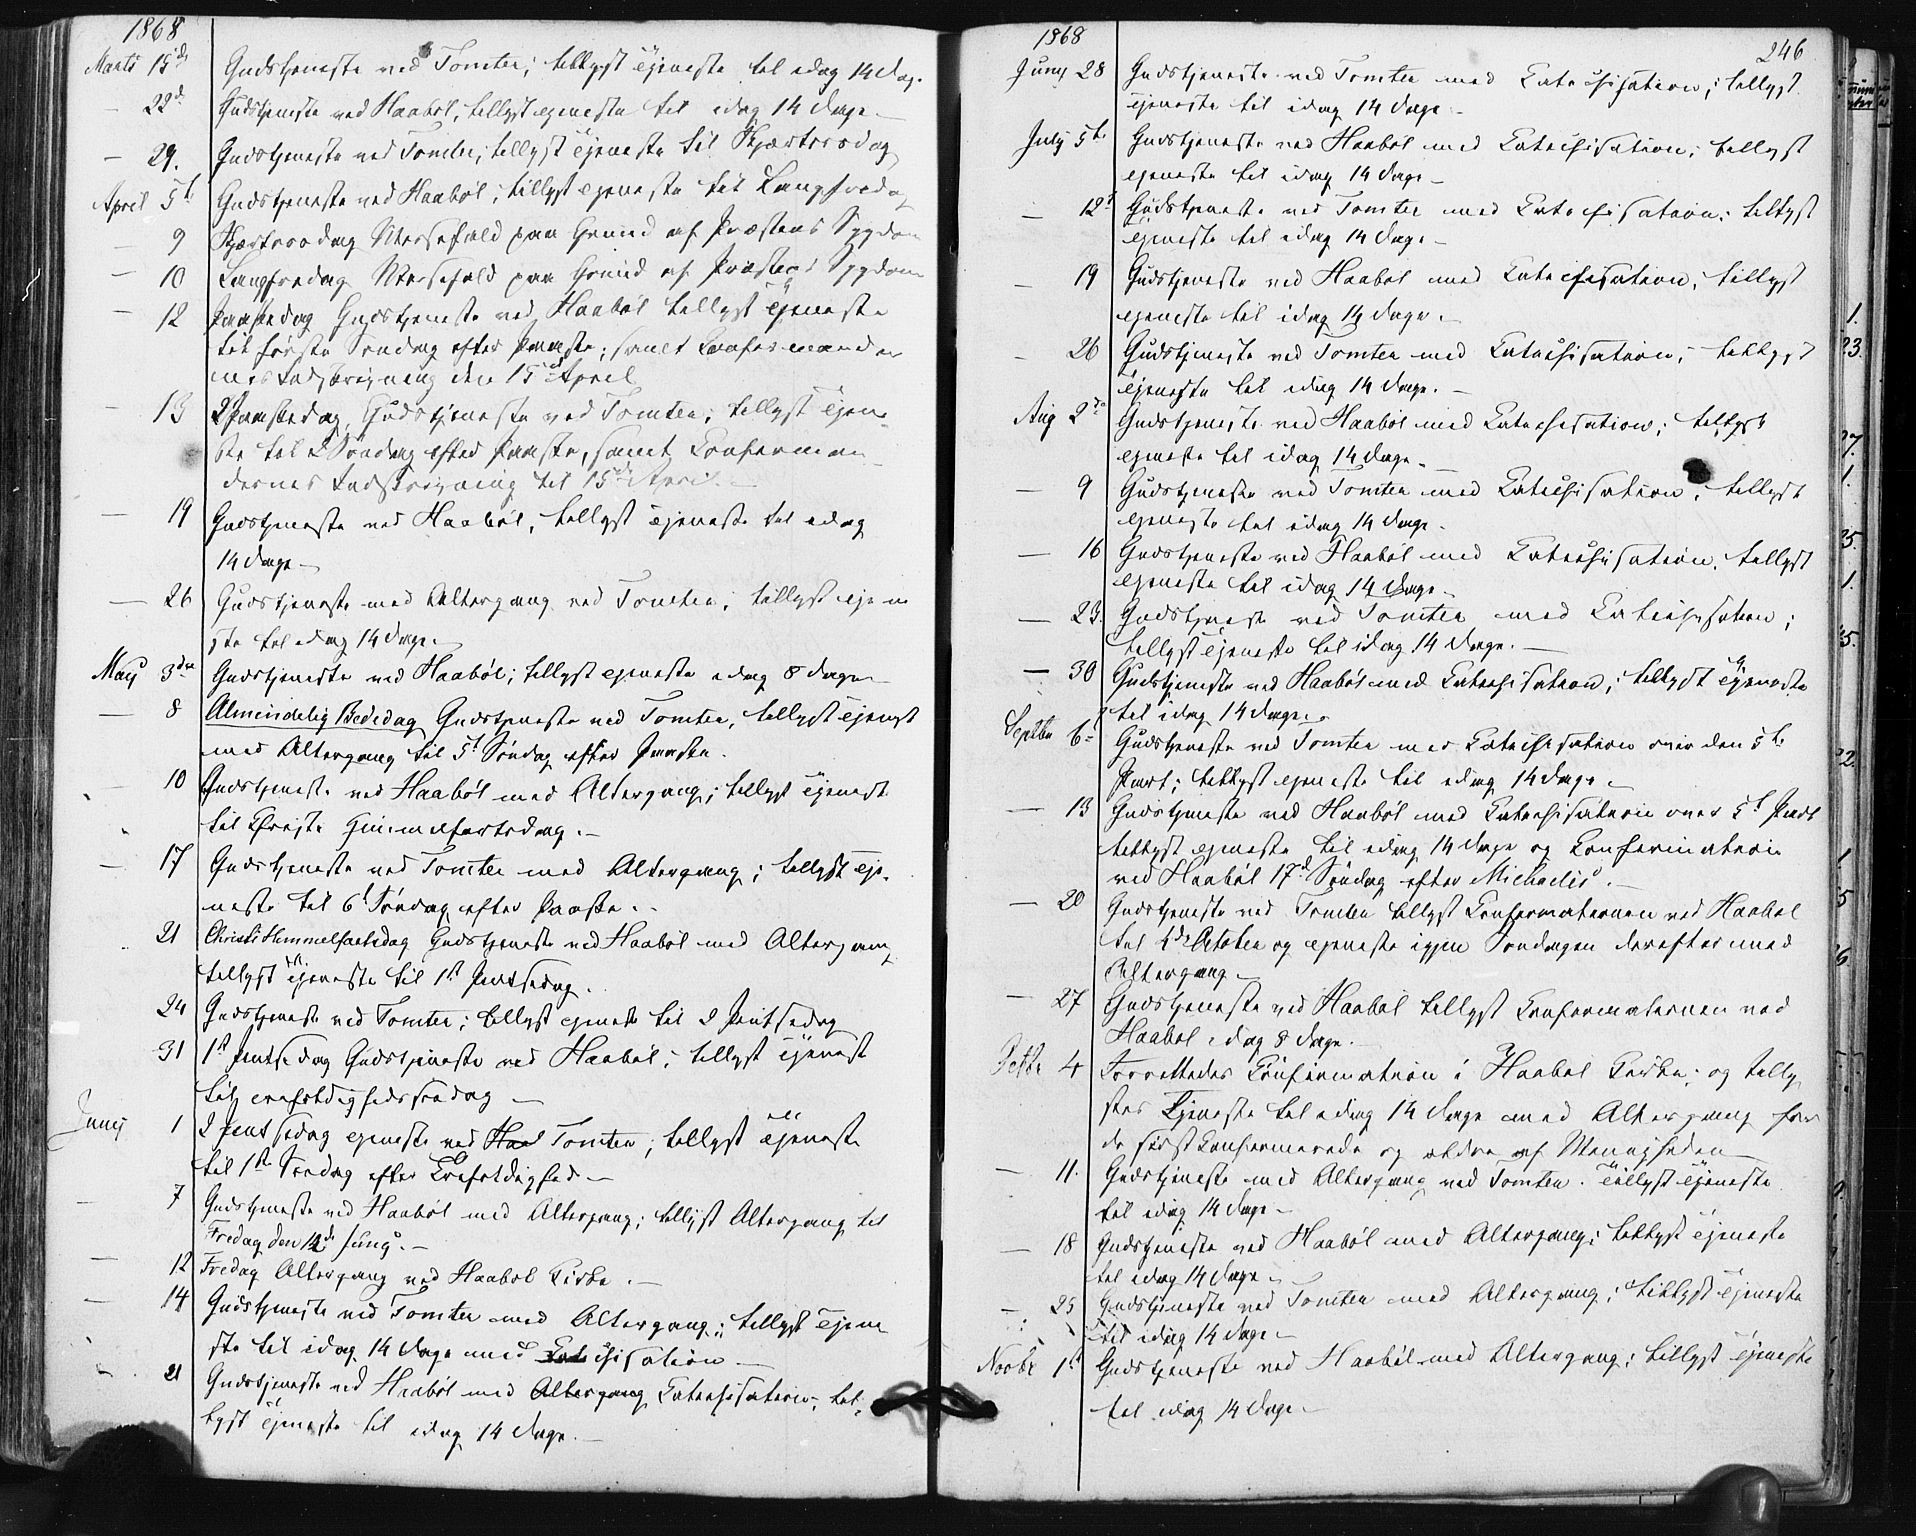 1868
Marts 15de Gudstjeneste ved Tomter; tillyst igjeneste til idag 14 Dage.
— 22de Gudstjeneste ved Haabøl, tillyst igjeneste til idag 14 Dage.—
— 29. Gudstjeneste ved Tomter; tillyst igjeneste til Skjærtorsdag
April 5te Gudstjeneste ved Haabøl; tillyst igjeneste til Langfredag
— 9 Skjærtorsdag Messefald paa Grund af Præstens Sygdom
— 10 Langfredag Messefald paa Grund af Præstens Sygdom
— 12 Paaskedag Gudstjeneste ved Haabøl tillyst igjeneste
til første Søndag efter Paaske; samt Konfirmander
nes Indskrivning den 15de April
— 13 2 Paaskedag, Gudstjeneste ved Tomter; tillyst igjene
ste til 2 Søndag efter Paaske, samt Konfirman
dernes Indskrivning til 15de April.—
— 19 Gudstjeneste ved Haabøl, tillyst igjeneste til idag
14 Dage—
— 26 Gudstjeneste med Altergang ved Tomter; tillyst igjene
ste til idag 14 Dage.
May 3die Gudstjeneste ved Haabøl; tillyst igjeneste idag 8 Dage—
— 8 Almindelig Bededag Gudstjeneste ved Tomter, tillyst igjenst
med Altergang til 5t Søndag efter Paaske.
— 10 Gudstjeneste ved Haabøl med Altergang; tillyst igjenest
til Christi Himmelfartsdag.—
— 17 Gudstjeneste ved Tomter med Altergang; tillyst igje-
neste til 6t Søndag efter Paaske..
21 Christi Himmelfartsdag Gudstjeneste ved Haabøl med Altergang
tillyst igjeneste til 1st Pintsedag.
24 Gudstjeneste ved Tomter; tillyst igjeneste til 2 Pintsedag
31 1st Pintsedag Gudstjeneste ved Haabøl; tillyst igjenest
til Trefoldighedssøndag —
Juny 1 2 Pintsedag igjeneste ved Haa Tomter; tillyst igjeneste
til 1ste Søndag efter Trefoldighed—
— 7 Gudstjeneste ved Haabøl med Altergang; tillyst Altergang til
Fredag den 12de Juny.—
— 12 Fredag Altergang ved Haabøl Kirke.—
— 14 Gudstjeneste ved Tomter med Altergang; tillyst igjene
ste til idag 14 Dage med Catechisation—
— 21 Gudstjeneste ved Haabøl med Altergang Catechisation, til-
lyst igjeneste til idag 14 Dage.—
1868
246
Juny 28 Gudstjeneste ved Tomter med Catechisation; tillyst
igjeneste til idag 14 Dage.
July 5te Gudstjeneste ved Haabøl med Catechisation; tillyst
igjeneste til idag 14 Dage—
— 12t Gudstjeneste ved Tomter med Catechisation; tillyst
igjeneste til idag 14 Dage—
— 19 Gudstjeneste ved Haabøl med Catechisation; tillyst
igjeneste til idag 14 Dage.—
— 26 Gudstjeneste ved Tomter med Catechisation; tillyst
igjeneste til idag 14 Dage.—
Aug 2de Gudstjeneste ved Haabøl med Catechisation; tillyst
igjeneste til idag 14 Dage.
— 9 Gudstjeneste ved Tomter med Catechisation; tillyst
igjeneste til idag 14 Dage.
— 16 Gudstjeneste ved Haabøl med Catechisation, tillyst
igjeneste til idag 14 Dage.
— 23. Gudstjeneste ved Tomter med Catechisation;
tillyst igjeneste til idag 14 Dage.—
— 30 Gudstjeneste ved Haabøl med Catechisation; tillyst igjeneste
til idag 14 Dage.
Septbr 6 Gudstjeneste ved Tomter med Catechisation over den 5te
Part; tillyst igjeneste til idag 14 Dage.
— 13 Gudstjeneste ved Haabøl med Catechisation over 5t Part
tillyst igjeneste til idag 14 Dage og Konfirmation
ved Haabøl 17de Søndag efter Michaelis.—
— 20 Gudstjeneste ved Tomter tillyst Konfirmationen ved Haabøl
til 4de October og igjeneste igjen Søndagen derefter med
Altergang—
— 27 Gudstjeneste ved Haabøl tillyst Konfirmationen ved
Haabøl idag 8 Dage.—
Octbr 4 Forrettedes Confirmation i Haabøl Kirke; og tilly
stes Tjeneste til idag 14 Dage med Altergang for
de sidst Konfirmerede og ældre af Menigheden—
— 11. Gudstjeneste med Altergang ved Tomter. Tillyst igjeneste
til idag 14 Dage—
— 18 Gudstjeneste ved Haabøl med Altergang; tillyst igjeneste
til idag 14 Dage—
— 25 Gudstjeneste ved Tomter med Altergang; tillyst igjeneste
til idag 14 Dage—
Novbr 1st Gudstjeneste ved Haabøl med Altergang; tillyst igjeneste
til idag 14 Dage.—